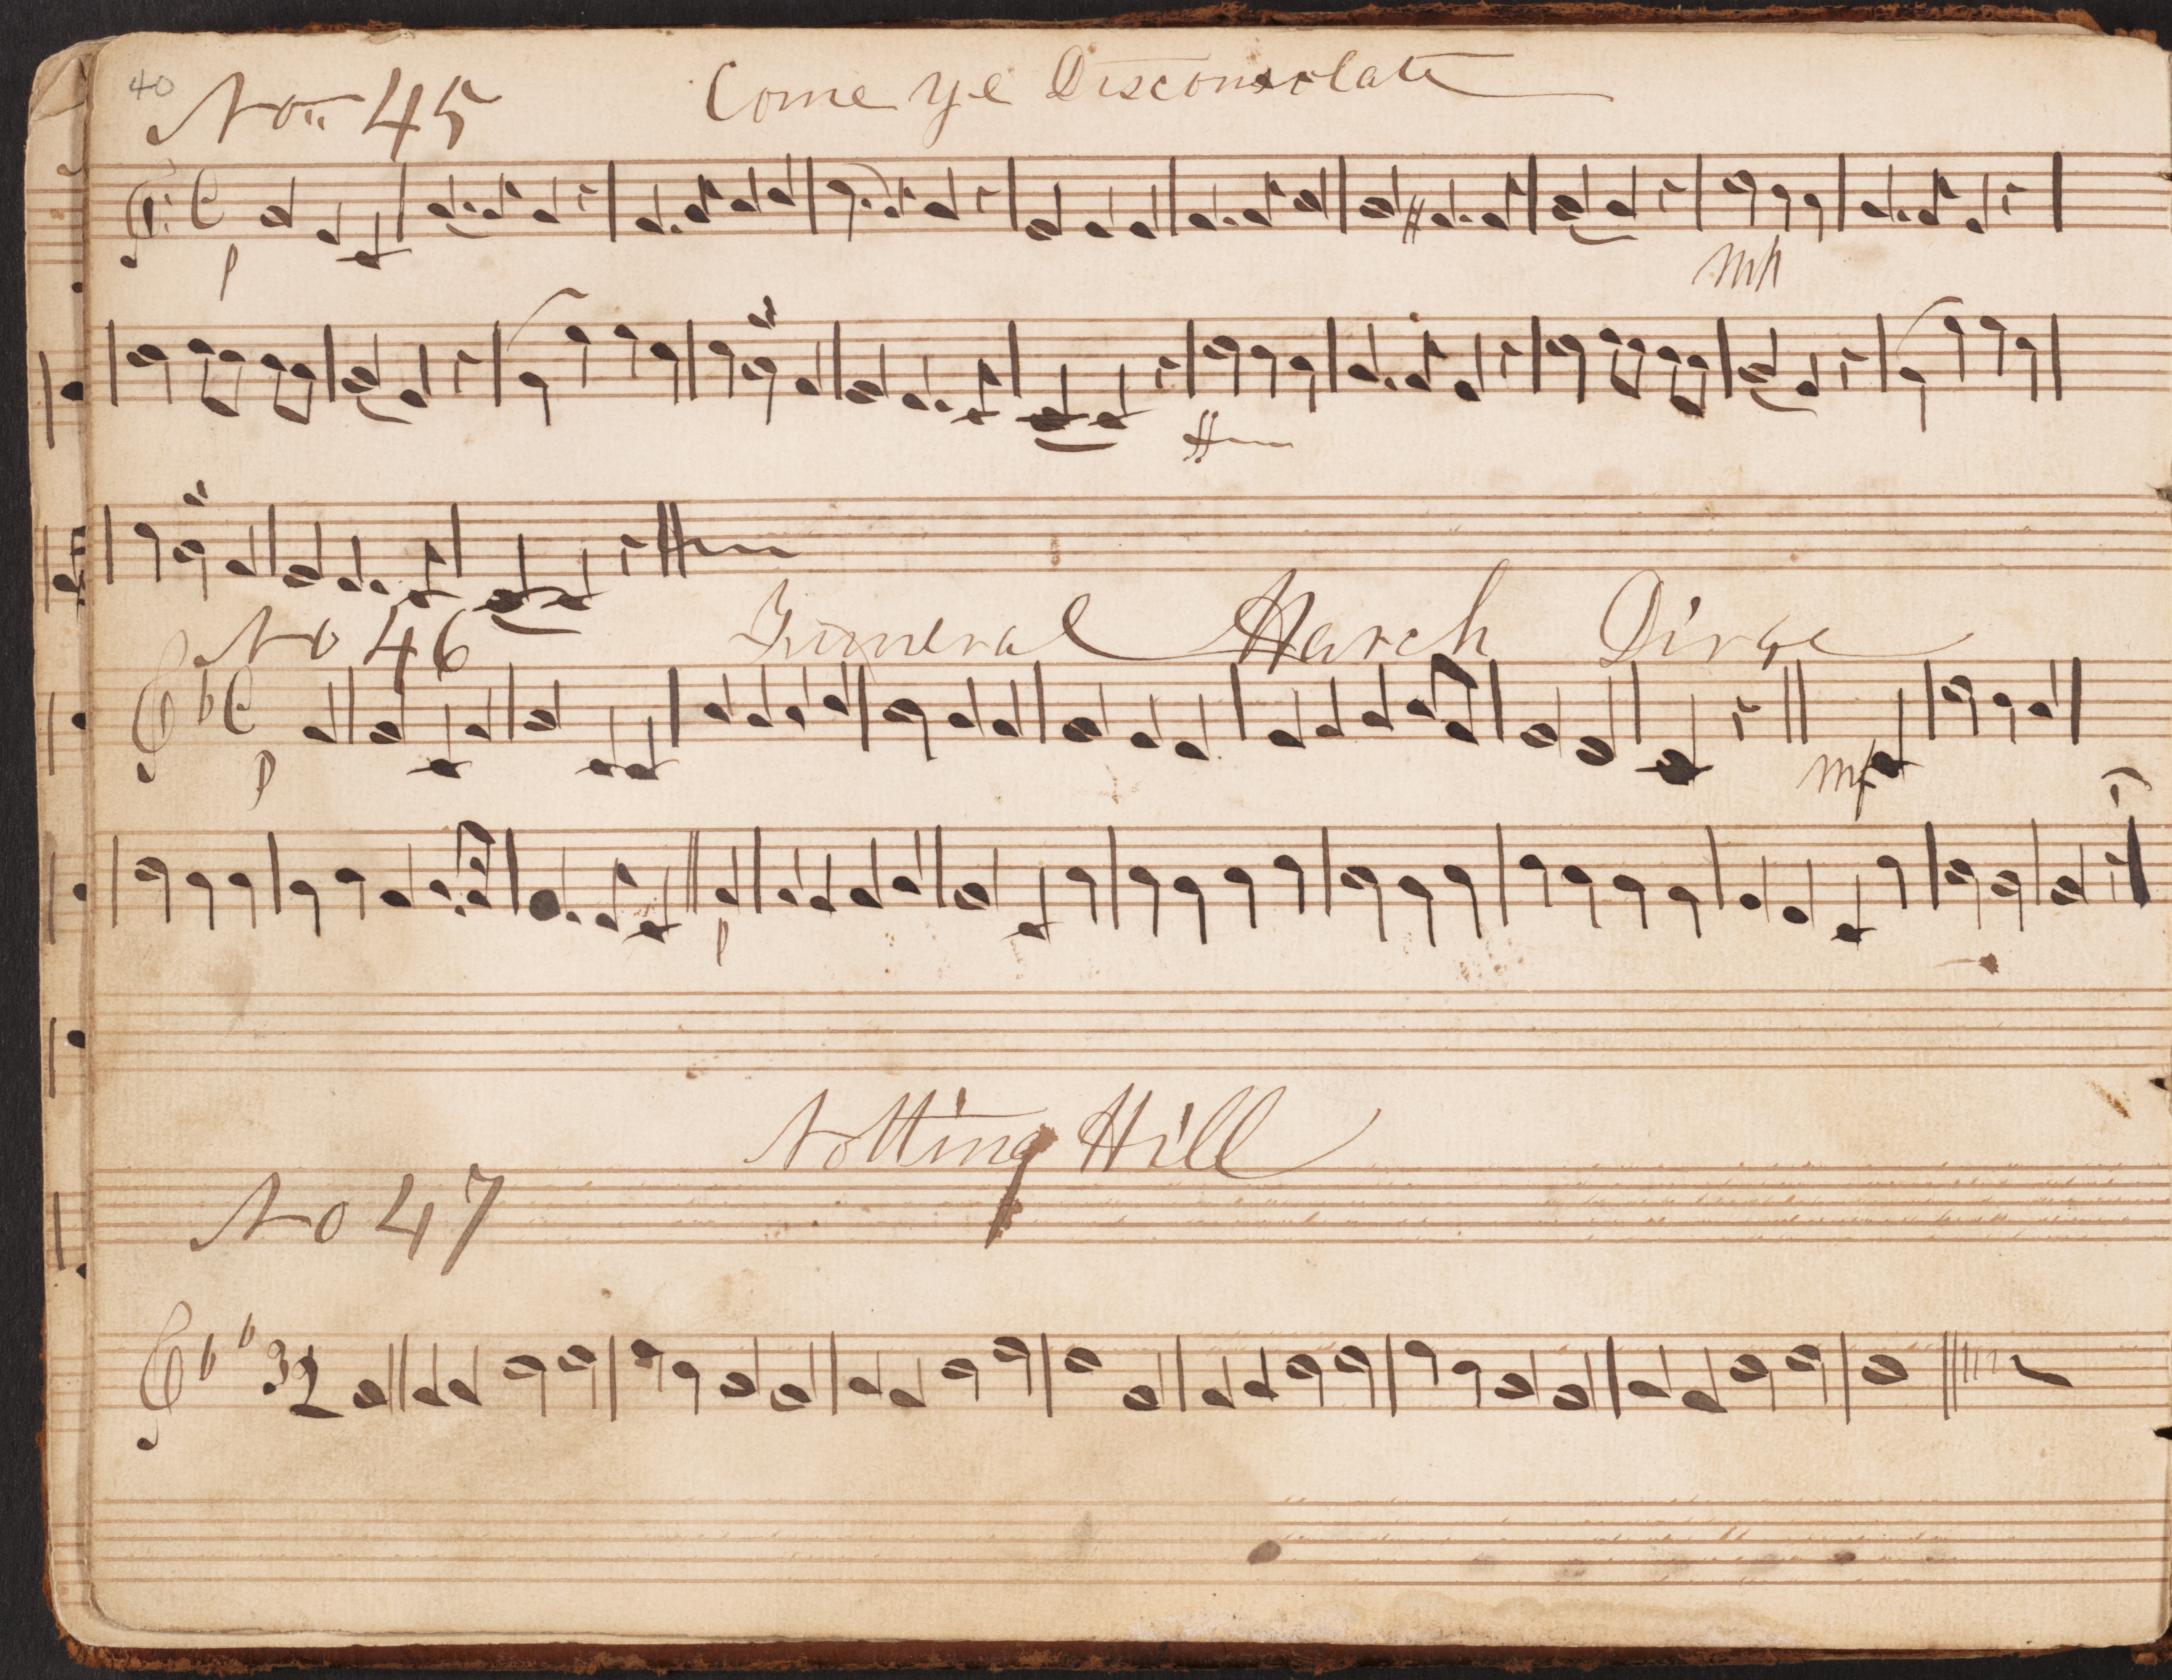 40
No. 45 Come ye Disconsolate
p
mp
ff
No 46 Funeral March Dirge
p
mf
p
Notting Hill
No 47
32